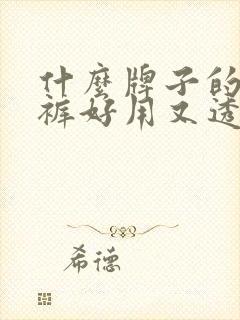 什麼牌子的
裤好用又透
希德